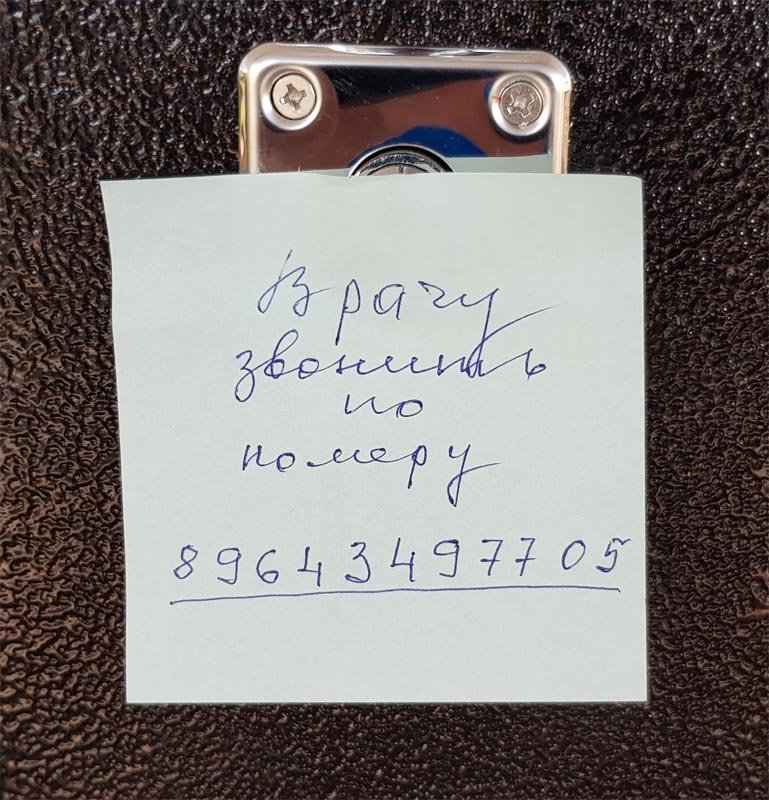 Врачу
звонить
по
номеру
89643497705